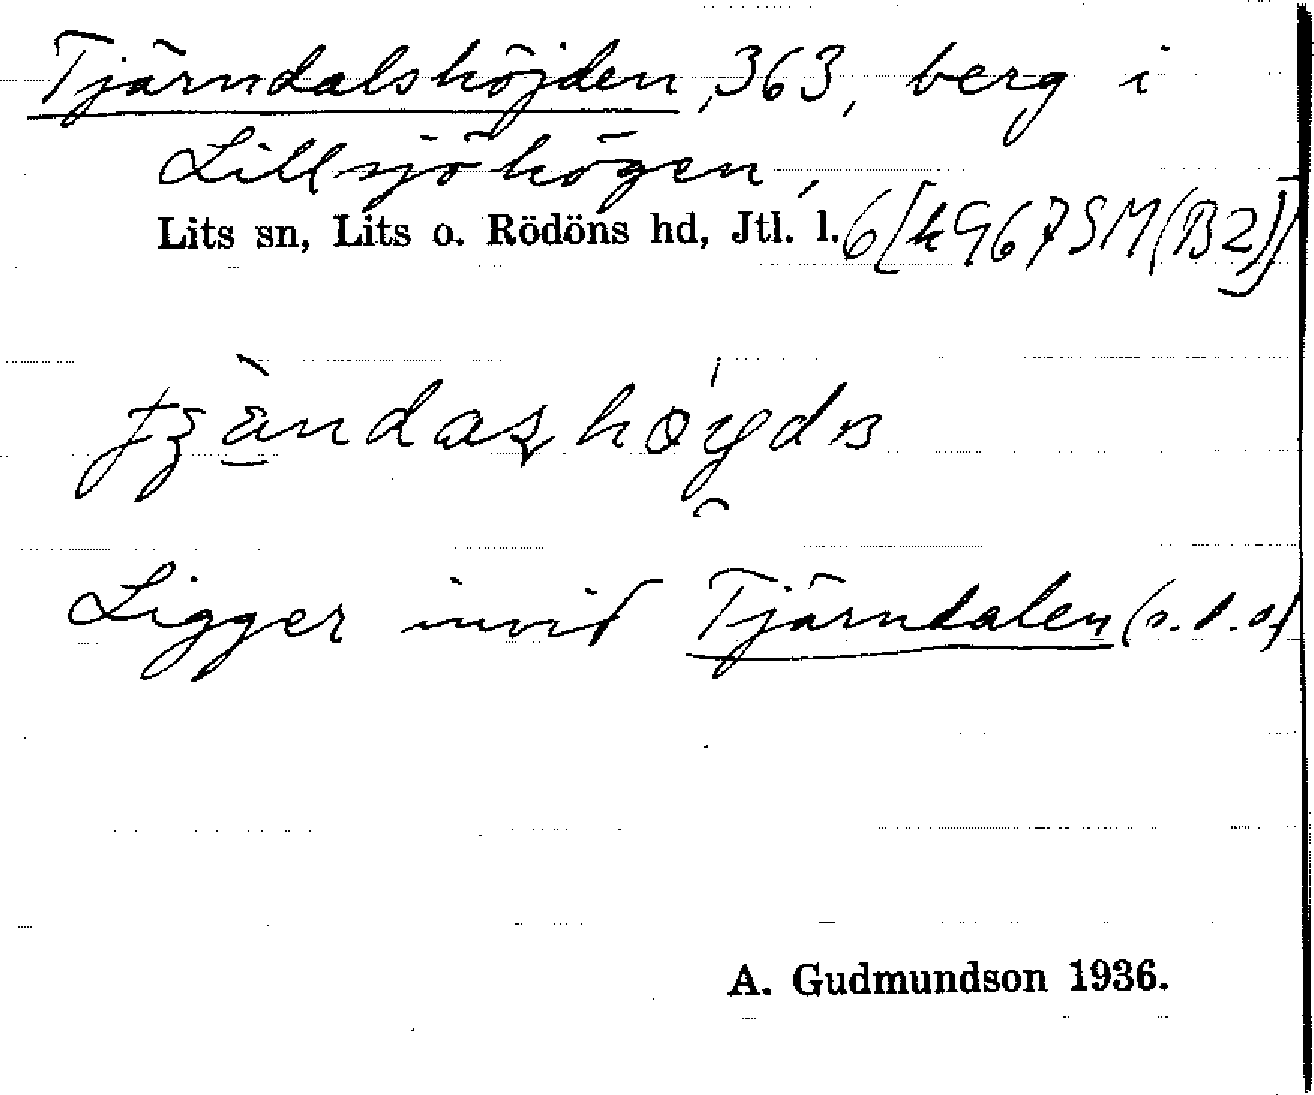 Tjärndalshöjden, 363, berg i
Lillsjöhögen,
Lits sn, Lits o. Rödöns hd, Jtl. l.
Ligger invid Tjärndalen (s.d.o)
A. Gudmundson 1936.